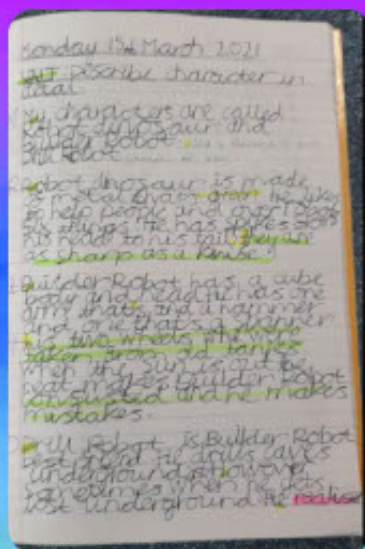 Monday 15th March 2021
WALT Describe character in
detail
My characters are called
Robot dinosaur and
Builder Robot
Drill Robot
Robot dinosaur is made
metal he likes
to help people and
his things. He has spikes from
his head to his tail they are
as sharp as a knife.
Builder Robot has a cube
body and head. He has one
arm thats a hammer
and one that
two wheels
taken from old tankes.
When the sun is out the
heat makes Builder Robot
frustrated and he makes
mistakes.
Drill Robot is Builder Robot
best friend. He drills caves
underground. However
sometimes when he gets
lost underground he